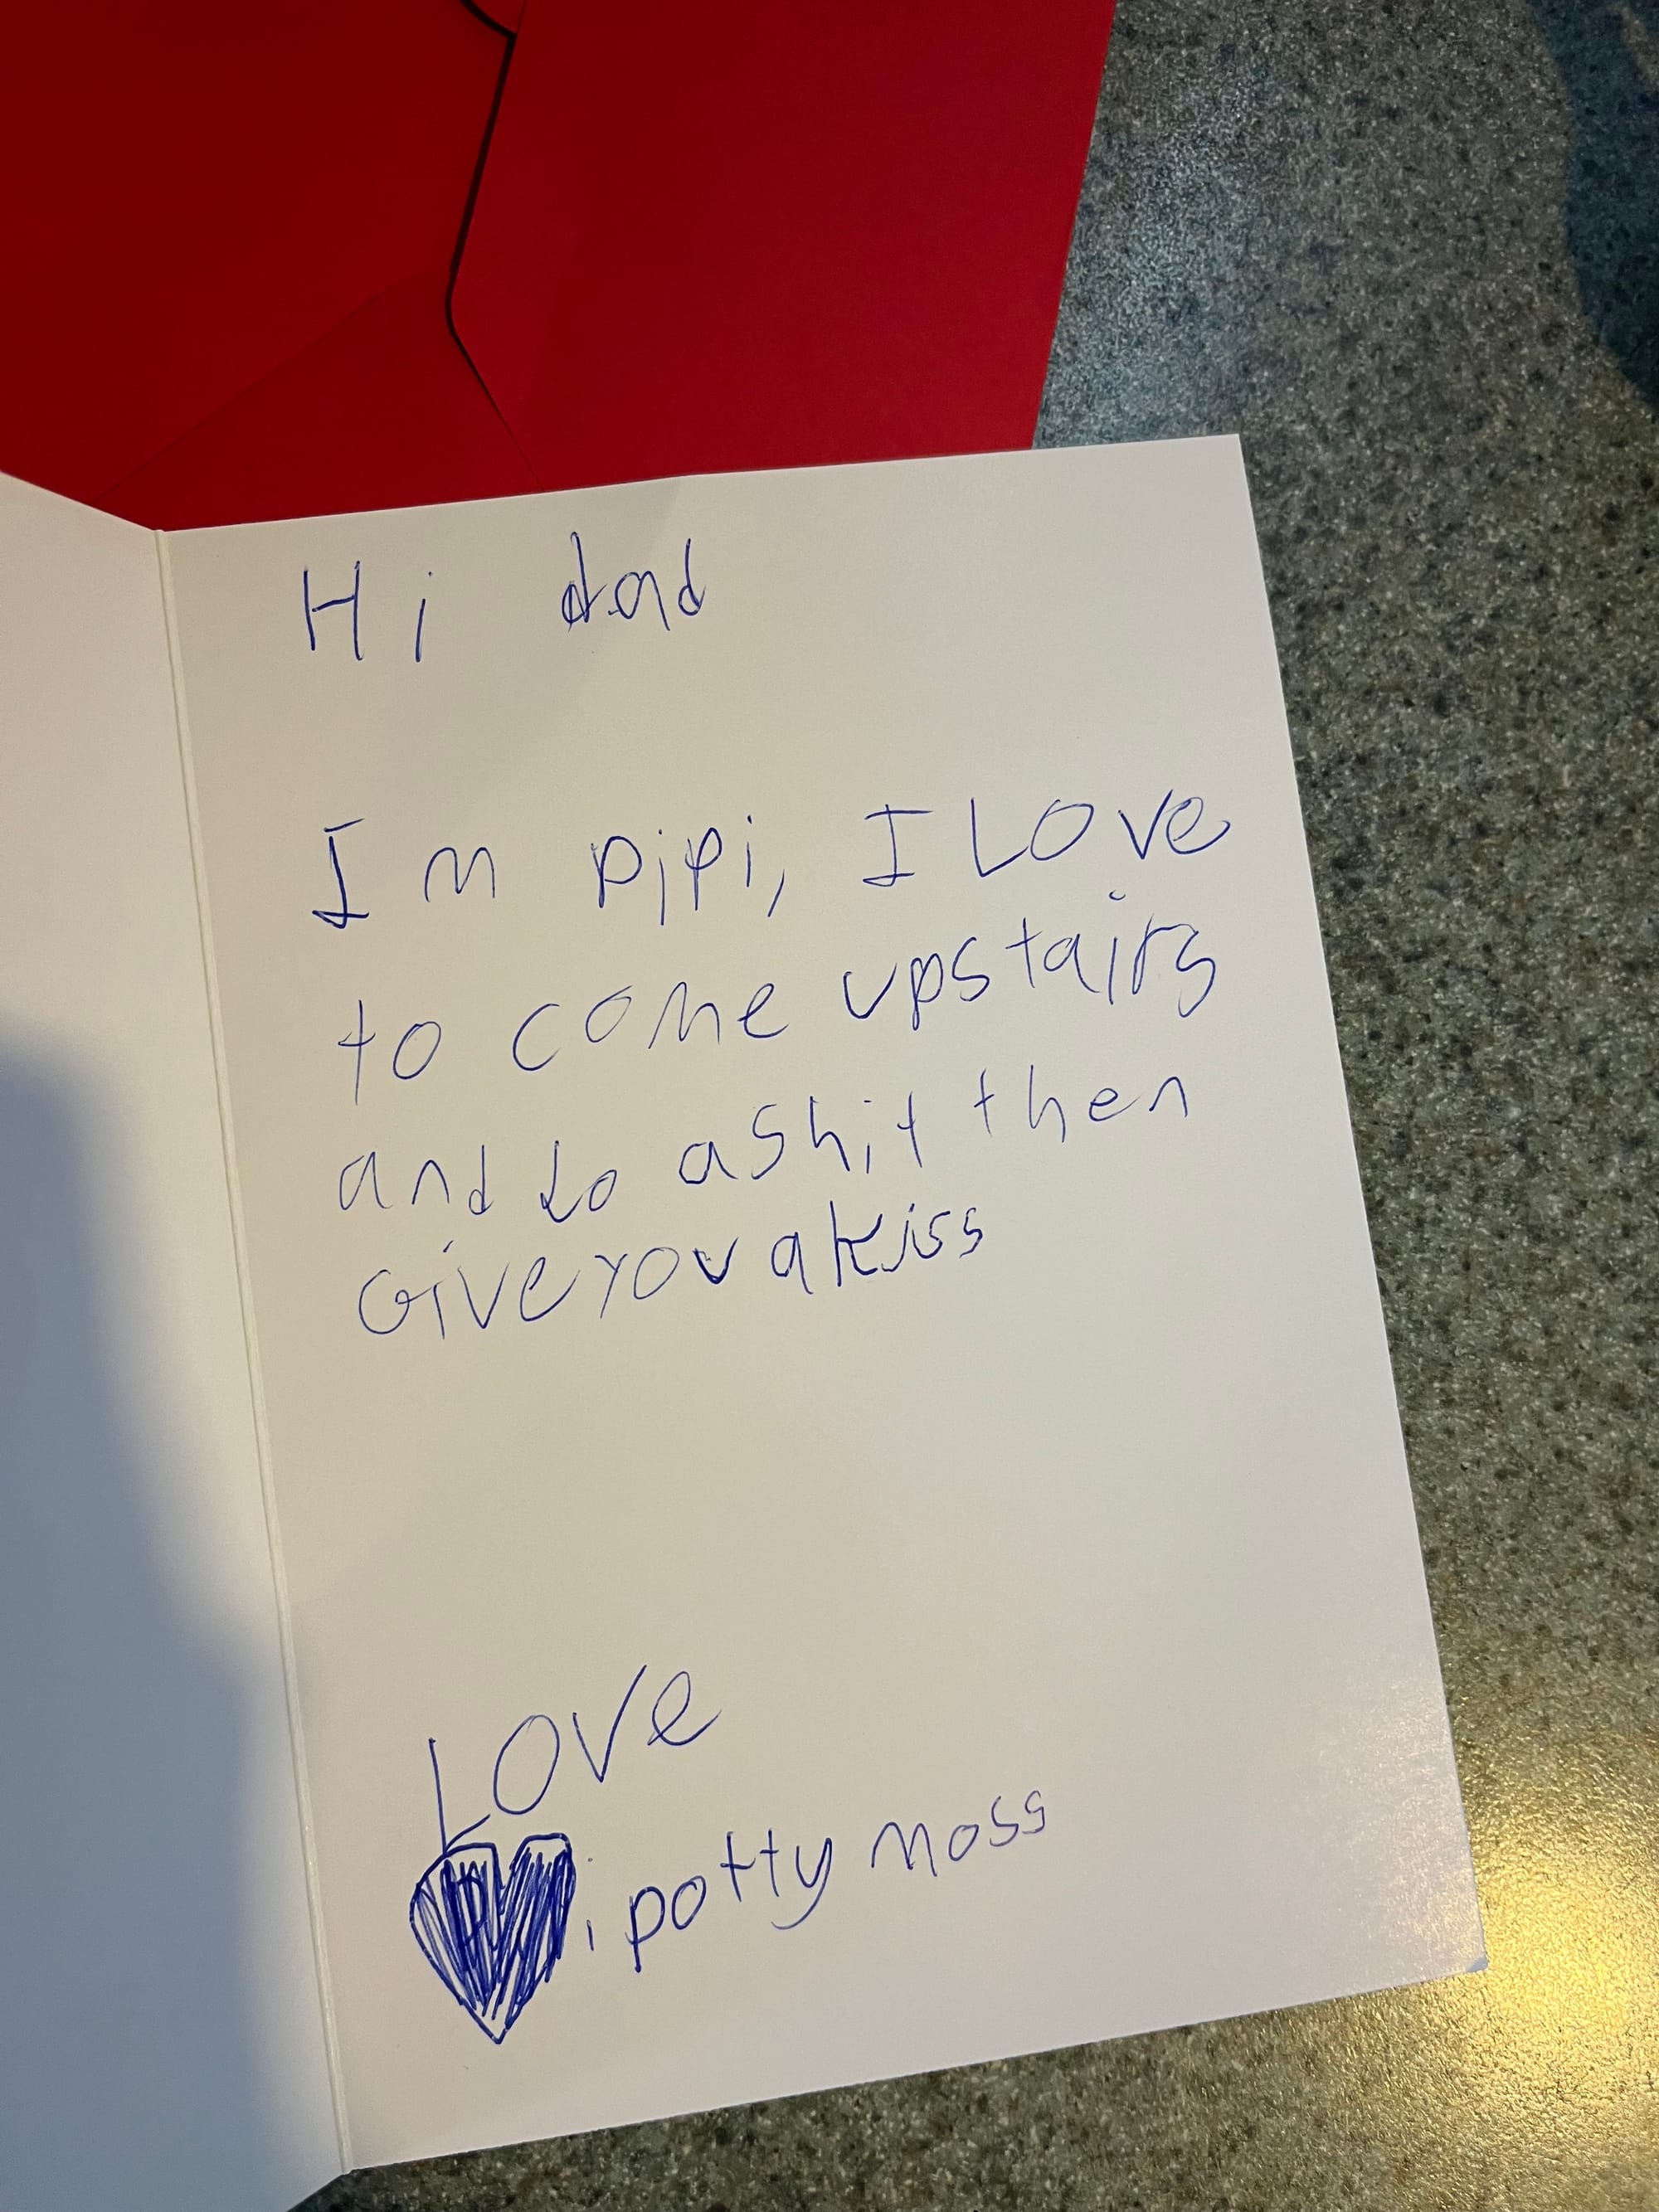 Hi dad
Im pipi, I LOve
to come upstairs
and do a Shit then
Give you a kiss
LOve
i potty moss